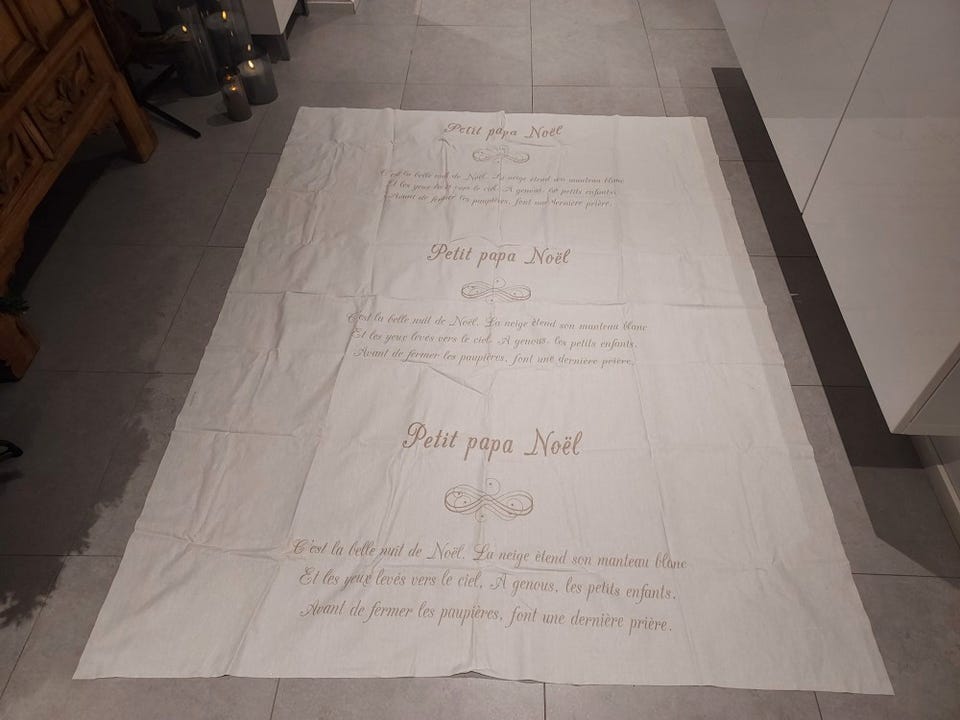 Petit papa Noël
C'est la belle nuit de Noël. La neige ètend son manteau blanc
Et les yeux levés vers le ciel, A genous, les petits enfants,
Avant de fermer les paupières, font une dernière prière.
Petit papa Noël
C'est la belle nuit de Noël. La neige ètend son manteau blanc
Et les yeux levés vers le ciel, A genous, les petits enfants,
Avant de fermer les paupières, font une dernière prière.
Petit papa Noël
C'est la belle nuit de Noël. La neige ètend son manteau blanc
Et les yeux levés vers le ciel, A genous, les petits enfants,
Avant de fermer les paupières, font une dernière prière.